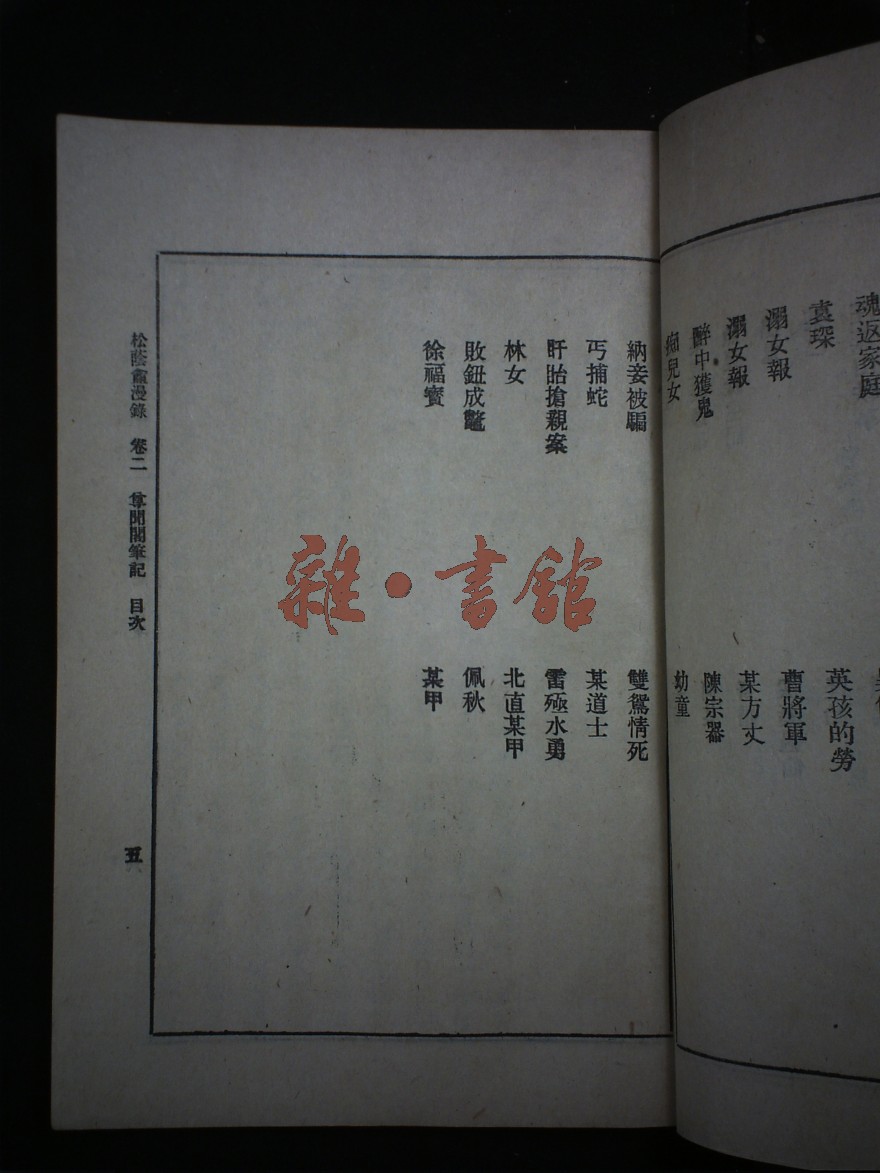 魂返家庭
袁琛
溺女報
溺女報
醉中獲鬼
痴兒女
英孩的勞
曹將軍
某方丈
陳宗器
幼童
納妾被騙
丐捕蛇
盱眙搶親案
林女
敗鈕成鼈
徐福寶
雙鴛情死
某道士
雷殛水勇
北直某甲
佩秋
某甲
松蔭盦漫錄 卷二 尊聞閣筆記 目次
五
雜·書館